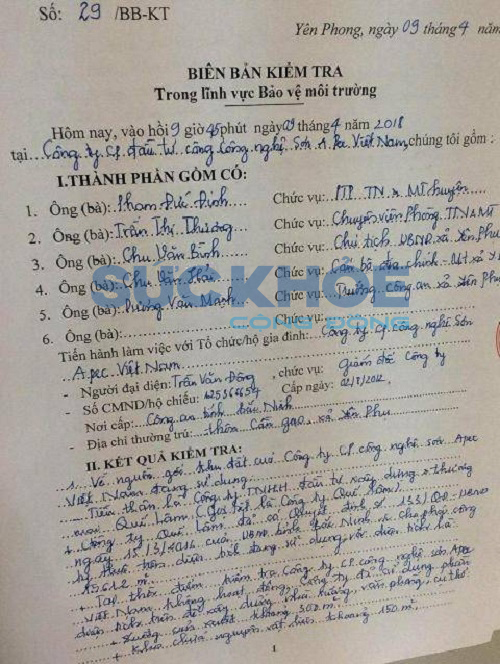 Số: 29 /BB-KT
Yên Phong, ngày 09 tháng 4 năm
BIÊN BẢN KIỂM TRA
Trong lĩnh vực Bảo vệ môi trường
Hôm nay, vào hồi 9 giờ 45 phút ngày 09 tháng 4 năm 2018
tại Công ty CP đầu tư công nghệ Sơn Apec Việt Nam, chúng tôi gồm :
I.THÀNH PHẦN GỒM CÓ:
1. Ông (bà): Phạm Đức Định Chức vụ: PTP TN & MT huyện
2. Ông (bà): Trần Thị Thương Chức vụ: Chuyên viên Phòng TN&MT
3. Ông (bà): Chu Văn Bình Chức vụ: Chủ tịch UBND xã Yên Phụ
4. Ông (bà): Chu Văn Chức vụ: Cán bộ địa chính - MT xã
5. Ông (bà): Văn Mạnh Chức vụ: Trưởng công an xã Yên Phụ
6. Ông (bà): Chức vụ:
SỨC KHỎE
CỘNG ĐỒNG
Tiến hành làm việc với Tổ chức/hộ gia đình: Công ty CP công nghệ Sơn
Apec Việt Nam
- Người đại diện: Trần Văn Đông , chức vụ: Giám đốc Công ty
- Số CMND/hộ chiếu: Cấp ngày:
Nơi cấp: Công an tỉnh Bắc Ninh
- Địa chỉ thường trú: thôn Cầu Gạo, xã Yên Phụ
II. KẾT QUẢ KIỂM TRA:
1. Về nguồn gốc khu đất của Công ty CP công nghệ sơn Apec
Việt Nam đang sử dụng
- Tiền thân là Công ty TNHH đầu tư xây dựng & thương
mại Quế Lâm (Gọi tắt là Công ty Quế Lâm)
+ Công ty Quế Lâm đã có Quyết định số 133/QĐ-UBND
ngày của UBND tỉnh Bắc Ninh cho phép công
ty thuê diện tích đang sử dụng với diện tích là
m²
+ Tại thời điểm kiểm tra Công ty CP công nghệ sơn Apec
Việt Nam không hoạt động, Công ty đã sử dụng phần
diện tích trên để xây dựng nhà xưởng, văn phòng, cụ thể:
+ Xưởng sản xuất khoảng 300 m²
+ Kho chứa nguyên vật liệu khoảng 150 m²
1